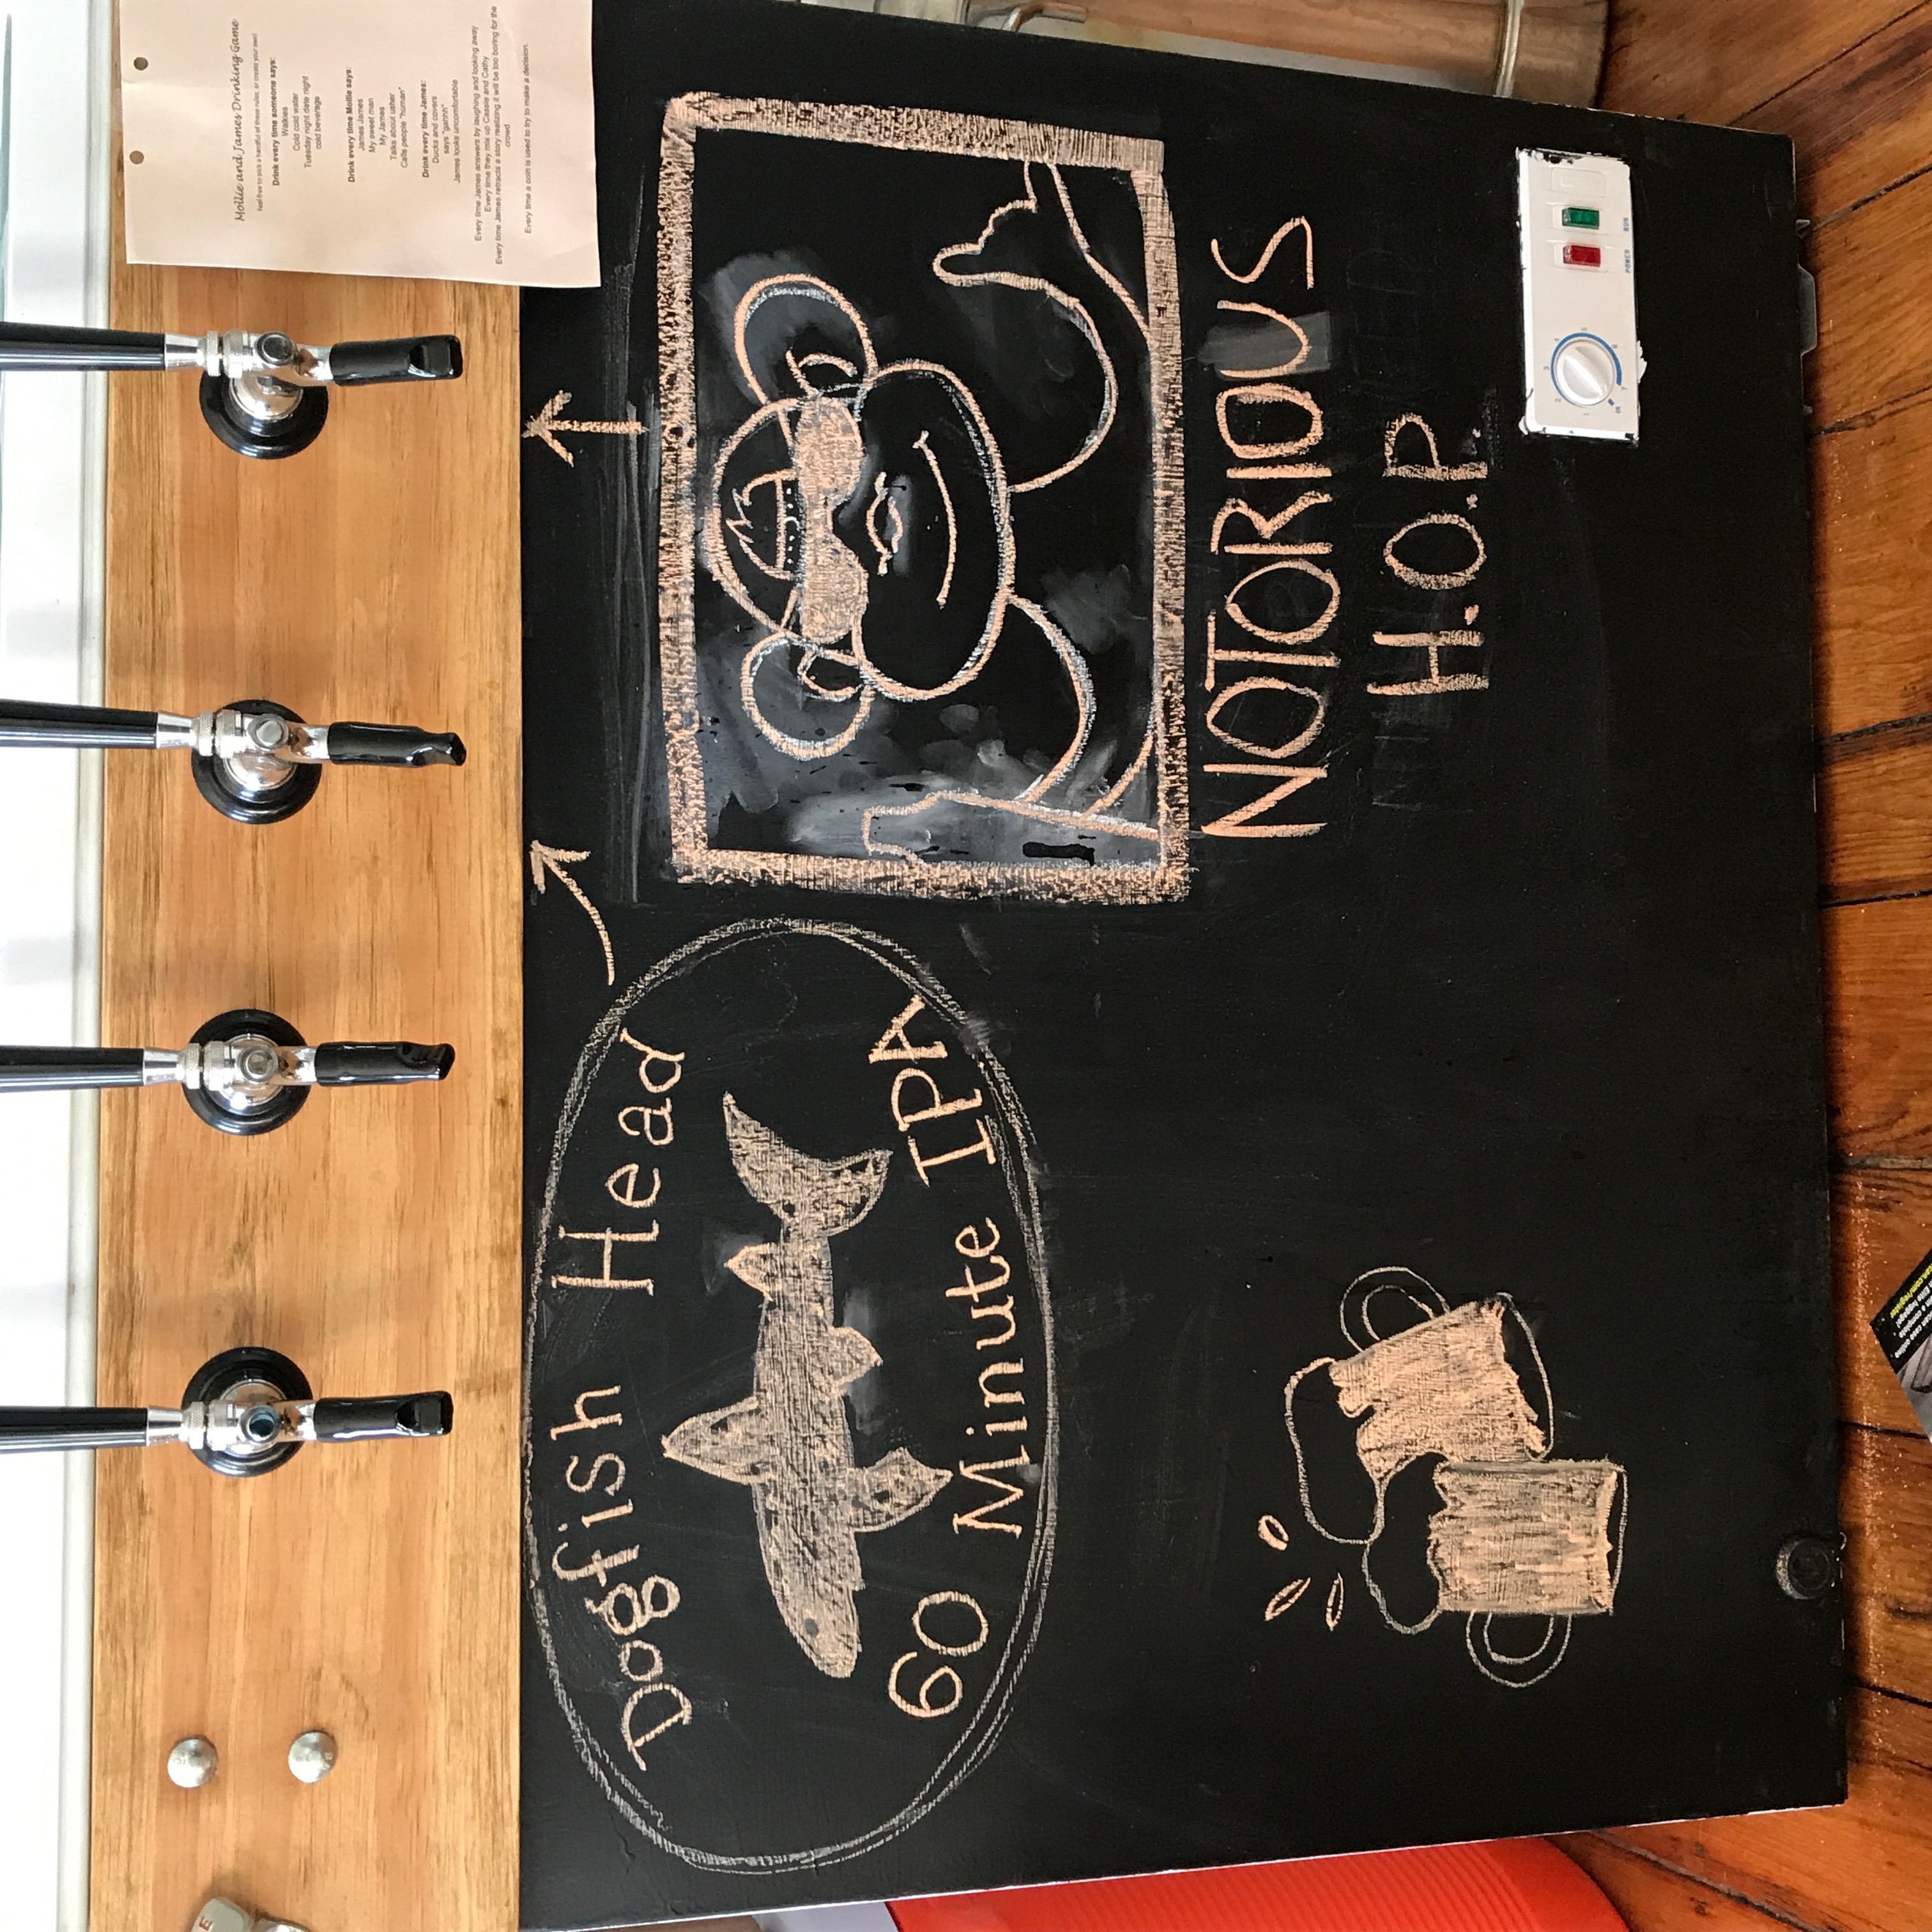 Mollie and James Drinking Game
Feel free to pick a handful of these rules, or create your own!
Drink every time someone says:
Walkies
Cold cold water
Tuesday night date night
cold beverage
Drink every time Mollie says:
James James
My sweet man
My James
Talks about usher
Calls people "human"
Drink every time James:
Ducks and covers
says "gahhh"
James looks uncomfortable
Every time James answers by laughing and looking away
Every time they mix up Cassie and Cathy
Every time James retracts a story realizing it will be too boring for the
crowd
Every time a coin is used to try to make a decision.
Dogfish Head
60 Minute IPA
NOTORIOUS
H.O.P.
1 2 3 4 5 6 7
POWER RUN